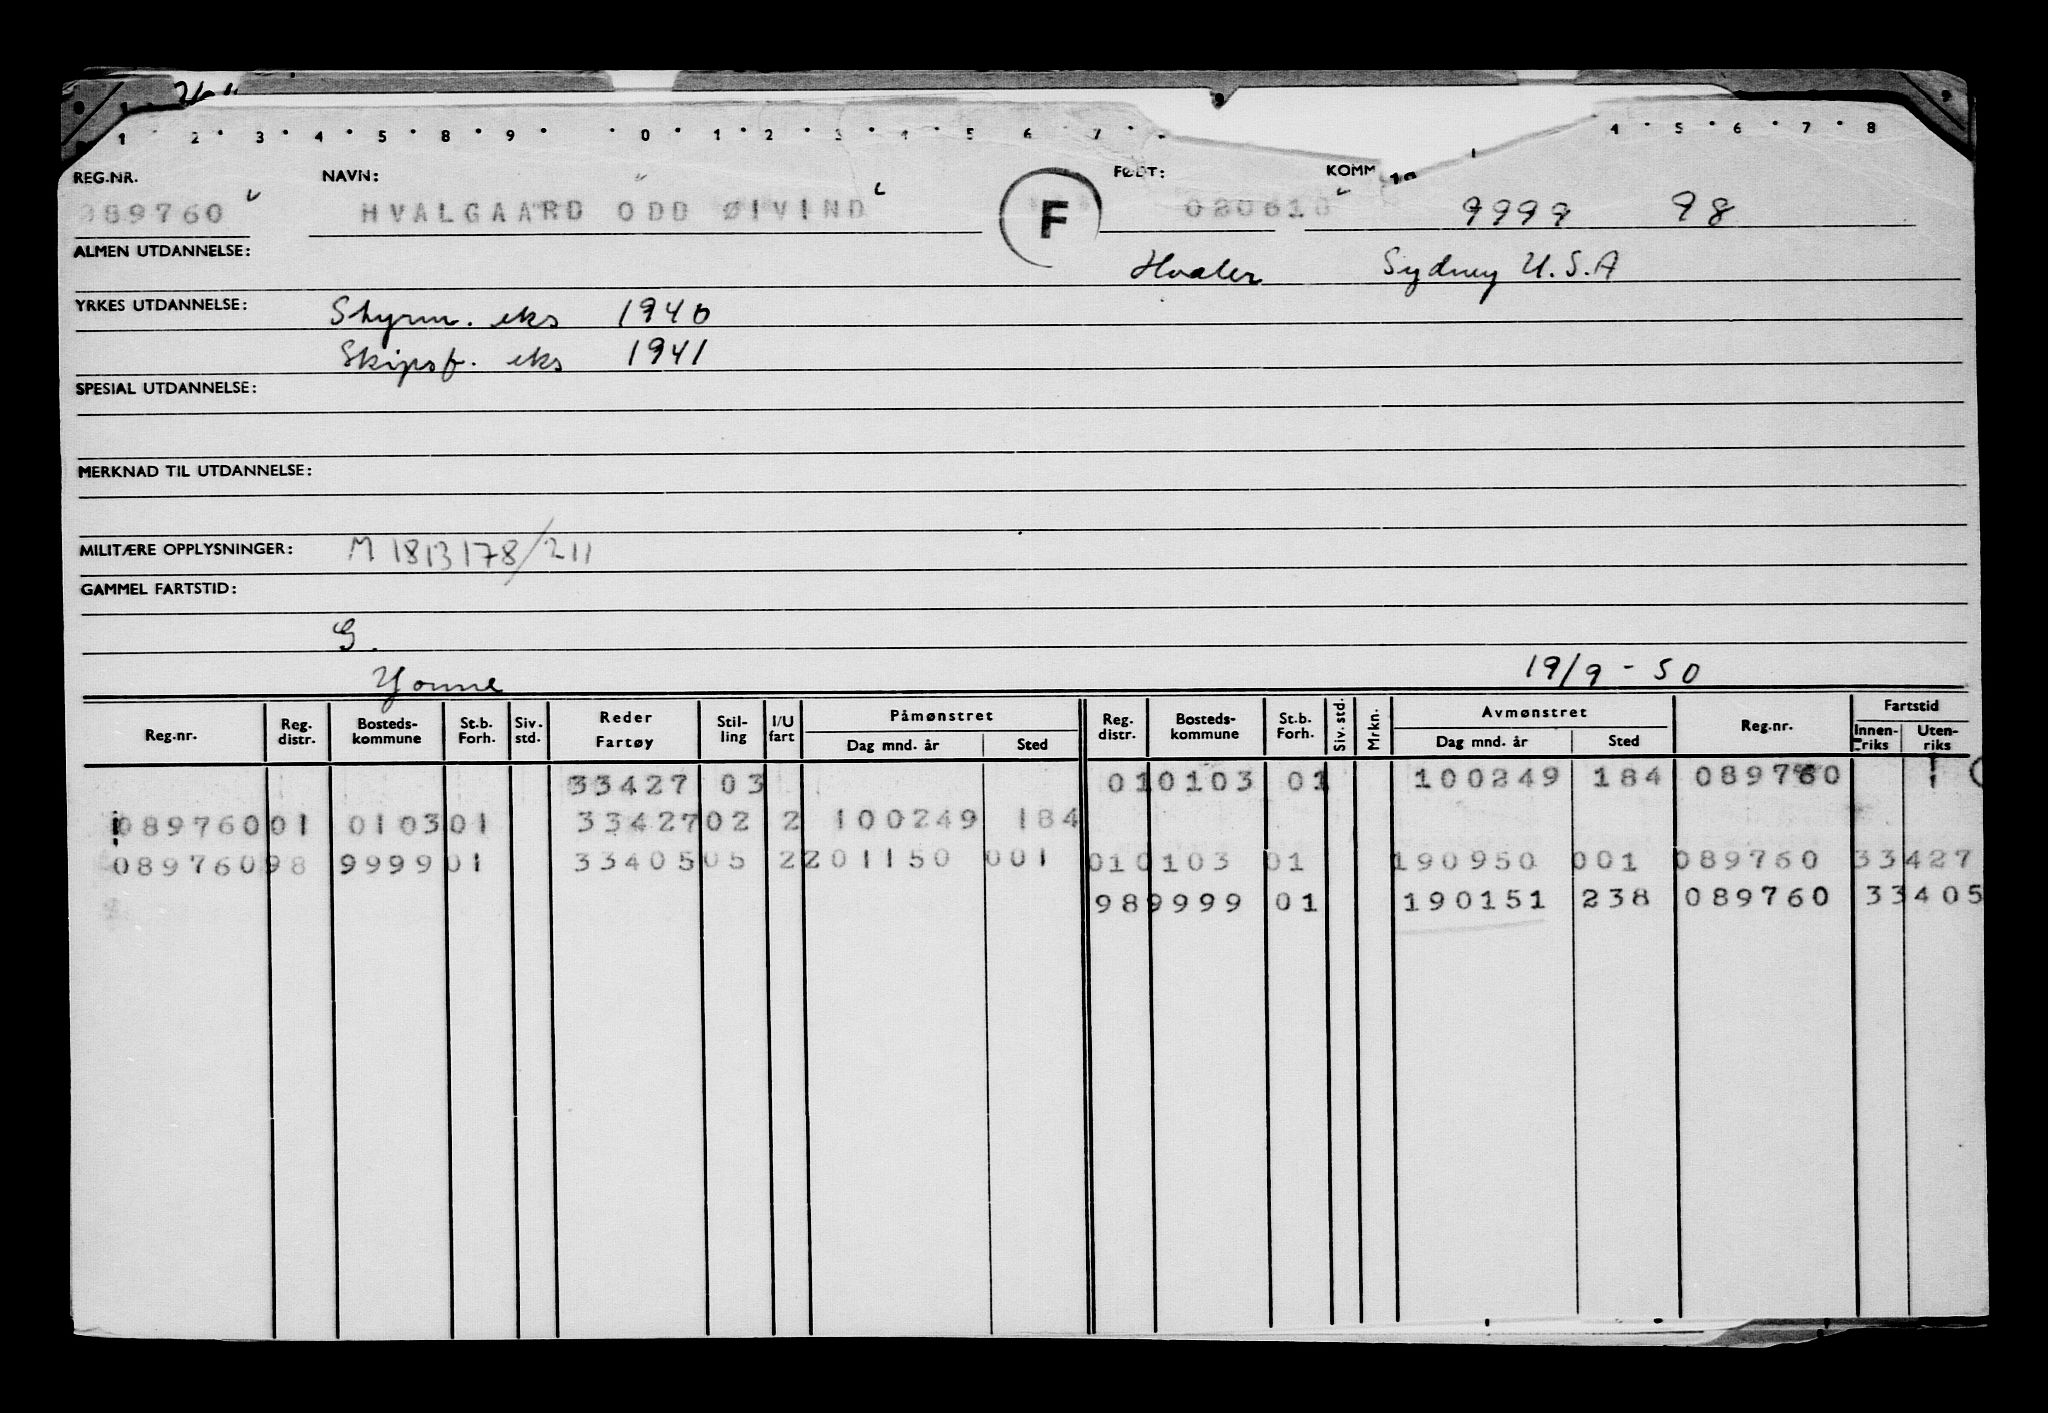 1 2 3 4 5 8 9 0 1 2 3 4 5 6 7 4 5 6 7 8
REG.NR. NAVN: FØDT: KOMM
089760 HVALGAARD ODD ØIVIND F 020610 9999 98
ALMEN UTDANNELSE: Hvaler Sydney U.S.A
YRKES UTDANNELSE: Styrm. eks 1940
Skipsf. eks 1941
SPESIAL UTDANNELSE:
MERKNAD TIL UTDANNELSE:
MILITÆRE OPPLYSNINGER: M 1813178/211
GAMMEL FARTSTID:
G.
19/9-50
Reg.nr. Reg. distr. Bosteds-kommune St.b. Forh. Siv. std. Reder Fartøy Stil-ling I/U fart Påmønstret Dag mnd. år Sted Reg. distr. Bosteds-kommune St.b. Forh. Siv. std. Mrkn. Avmønstret Dag mnd. år Sted Reg.nr. Fartstid Innen-riks Uten-riks
33427 03 01 0103 01 100249 184 089760
089760 01 0103 01 33427 02 2 100249 184
089760 98 9999 01 33405 05 2 201150 001 01 0103 01 190950 001 089760 33427
98 9999 01 190151 238 089760 33405